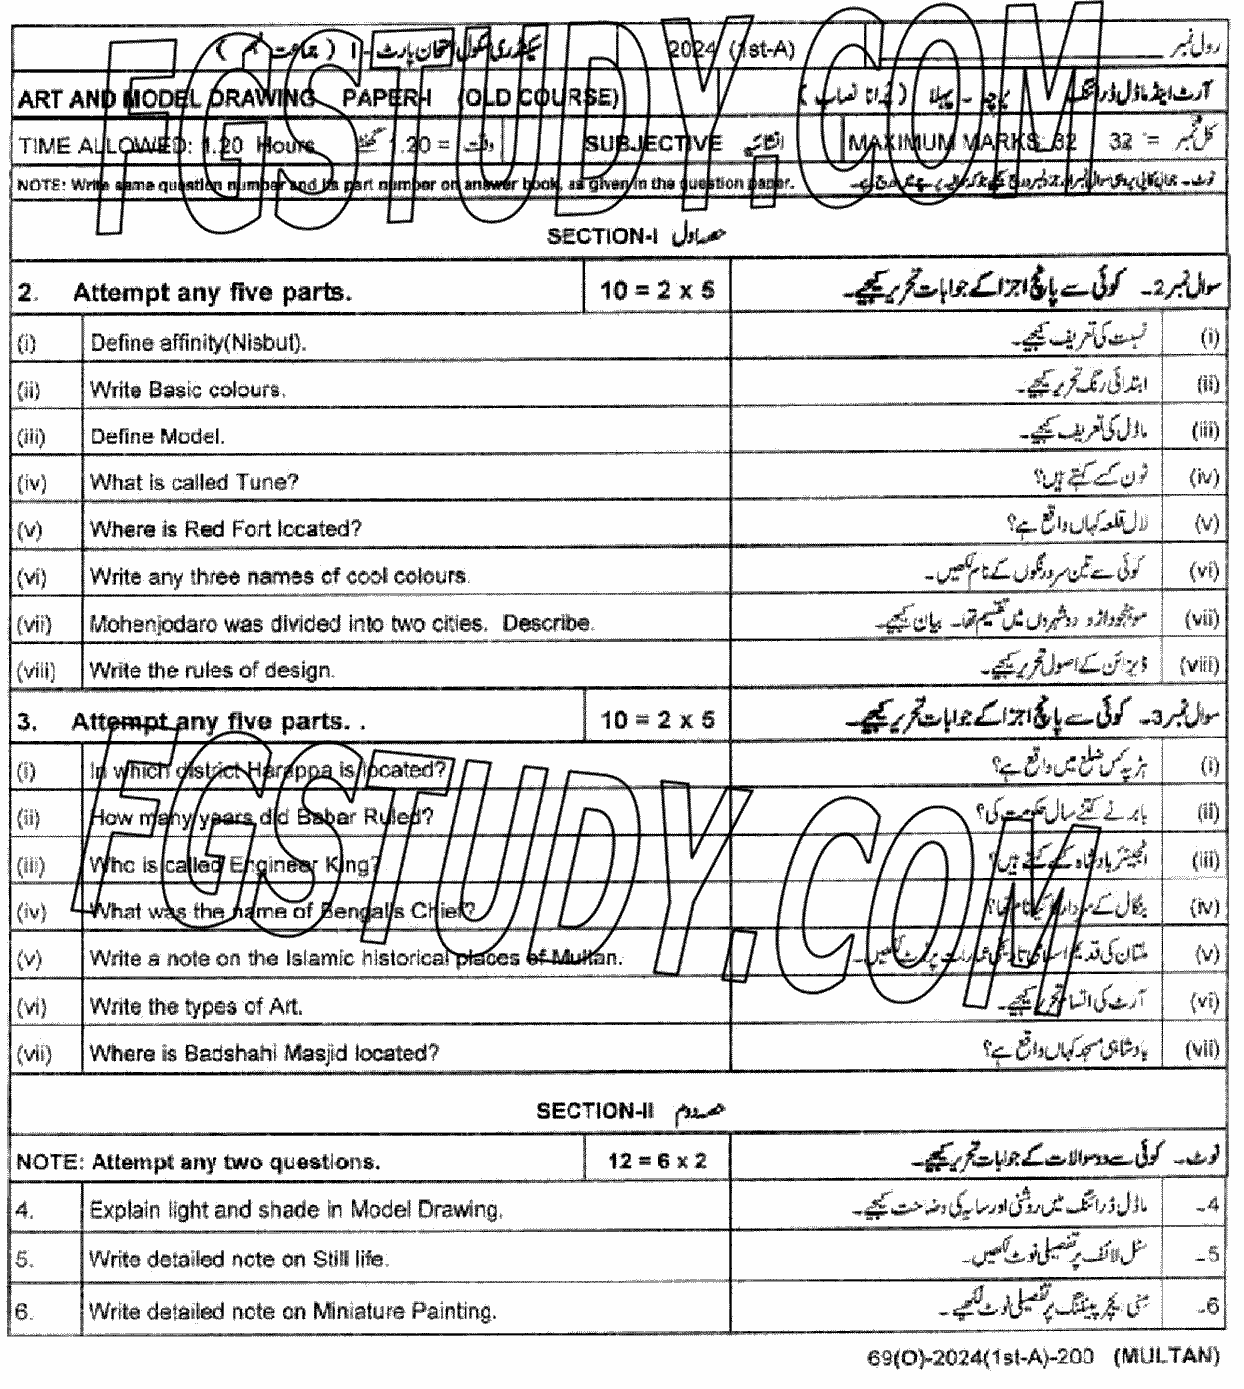 رولنمبر 2024 (1st-A) سیکنڈری سکول امتحان پارٹ - I ( جماعت نہم )
ART AND MODEL DRAWING PAPER-I (OLD COURSE) آرٹ اینڈ ماڈل ڈرائنگ پرچہ ۔ پہلا ( پُرانا نصاب )
TIME ALLOWED: 1.20 Hours وقت = 1.20 گھنٹے SUBJECTIVE انشائیہ MAXIMUM MARKS: 32 کل نمبر = 32
NOTE: Write same question number and its part number on answer book, as given in the question paper.
SECTION-I حصہ اول
2. Attempt any five parts. 10 = 2 x 5 سوال نمبر 2۔ کوئی سے پانچ اجزا کے جوابات تحریر کیجیے۔
(i) Define affinity(Nisbut). نسبت کی تعریف کیجیے۔ (i)
(ii) Write Basic colours. ابتدائی رنگ تحریر کیجیے۔ (ii)
(iii) Define Model. ماڈل کی تعریف کیجیے۔ (iii)
(iv) What is called Tune? ٹون کسے کہتے ہیں؟ (iv)
(v) Where is Red Fort located? لال قلعہ کہاں واقع ہے؟ (v)
(vi) Write any three names of cool colours. کوئی سے تین سرد رنگوں کے نام لکھیں۔ (vi)
(vii) Mohenjodaro was divided into two cities. Describe. موہنجوداڑو دو شہروں میں تقسیم تھا۔ بیان کیجیے۔ (vii)
(viii) Write the rules of design. ڈیزائن کے اصول تحریر کیجیے۔ (viii)
3. Attempt any five parts. . 10 = 2 x 5 سوال نمبر 3۔ کوئی سے پانچ اجزا کے جوابات تحریر کیجیے۔
(i) In which district Harappa is located? ہڑپہ کس ضلع میں واقع ہے؟ (i)
(ii) How many years did Babar Ruled? بابر نے کتنے سال حکومت کی؟ (ii)
(iii) Who is called Engineer King? انجینئر بادشاہ کسے کہتے ہیں؟ (iii)
(iv) What was the name of Bengal's Chief? بنگال کے سردار کا کیا نام تھا؟ (iv)
(v) Write a note on the Islamic historical places of Multan. ملتان کی قدیم اسلامی تاریخی عمارات پر نوٹ لکھیں۔ (v)
(vi) Write the types of Art. آرٹ کی اقسام تحریر کیجیے۔ (vi)
(vii) Where is Badshahi Masjid located? بادشاہی مسجد کہاں واقع ہے؟ (vii)
SECTION-II حصہ دوم
NOTE: Attempt any two questions. 12 = 6 x 2 نوٹ۔ کوئی سے دو سوالات کے جوابات تحریر کیجیے۔
4. Explain light and shade in Model Drawing. ماڈل ڈرائنگ میں روشنی اور سایہ کی وضاحت کیجیے۔ 4۔
5. Write detailed note on Still life. سٹل لائف پر تفصیلی نوٹ لکھیں۔ 5۔
6. Write detailed note on Miniature Painting. منی ایچر پینٹنگ پر تفصیلی نوٹ لکھیے۔ 6۔
69(O)-2024(1st-A)-200 (MULTAN)
FGSTUDY.COM
FGSTUDY.COM